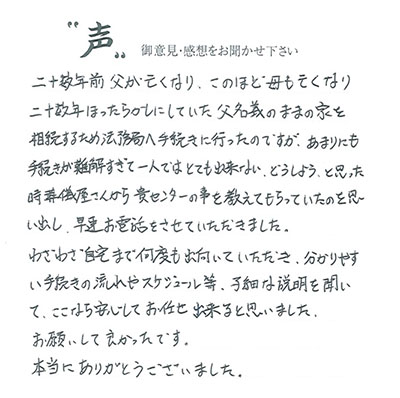 "声" 御意見・感想をお聞かせ下さい
二十数年前 父が亡くなり、このほど母も亡くなり
二十数年ほったらかしにしていた父名義のままの家を
相続するため法務局へ手続きに行ったのですが、あまりにも
手続きが難解すぎて一人ではとても出来ない、どうしよう、と思った
時葬儀屋さんから貴センターの事を教えてもらっていたのを思
い出し、早速お電話をさせていただきました。
わざわざ自宅まで何度も出向いていただき、分かりやす
い手続きの流れやスケジュール等、子細な説明を聞い
て、ここなら安心してお任せ出来ると思いました。
お願いして良かったです。
本当にありがとうございました。